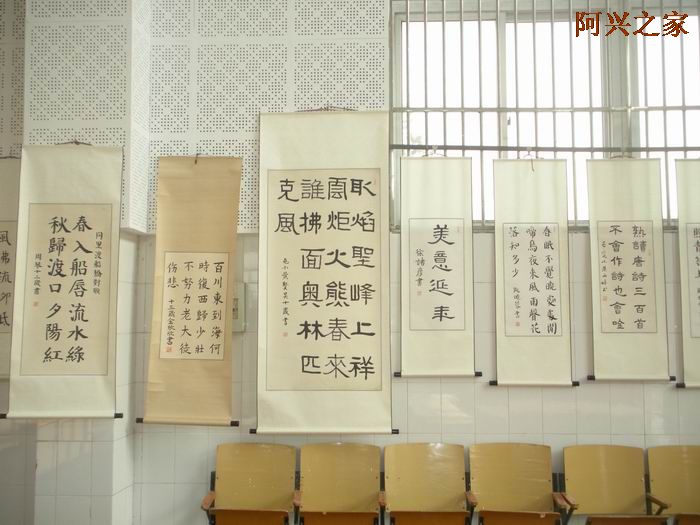 阿兴之家
同里渡船橋對聯
春入船唇流水綠
秋歸渡口夕陽紅
周琴十二歲書
百川東到海何
時復西歸少壯
不努力老大徒
伤悲
十三歲金秋欣書
取焰聖峰上祥
雲炬火熊春來
誰拂面奧林匹
克風
美意延年
春眠不覺曉處處聞
啼鳥夜來風雨聲花
落知多少
熟讀唐詩三百首
不會作詩也會唫